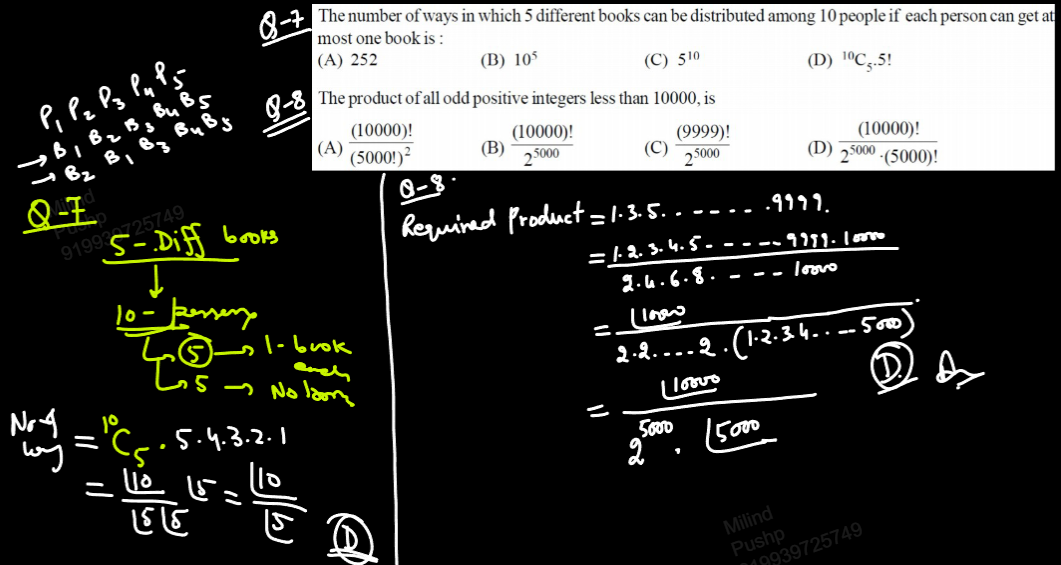 Q-7 The number of ways in which 5 different books can be distributed among 10 people if each person can get at
most one book is :
(A) 252 (B) 10⁵ (C) 5¹⁰ (D) ¹⁰C₅.5!
Q-8 The product of all odd positive integers less than 10000, is
(A) (10000)!/(5000!)² (B) (10000)!/2⁵⁰⁰⁰ (C) (9999)!/2⁵⁰⁰⁰ (D) (10000)!/2⁵⁰⁰⁰·(5000)!
P₁ P₂ P₃ P₄ P₅
→ B₁ B₂ B₃ B₄ B₅
→ B₂ B₁ B₃ B₄ B₅
Q-7
5-Diff books
↓
10-
⑤ → 1-book
each
5 → No
= ¹⁰C₅ . 5.4.3.2.1
= |10/|5 |5 |5 = |10/|5
(D)
Q-8.
Required Product = 1.3.5.. - - - - - .9999.
= 1.2.3.4.5- - - - - 9999.10000/2.4.6.8. - - - 10000
= |10000/2.2....2.(1.2.3.4...--5000)
= |10000/2⁵⁰⁰⁰ . |5000
(D.)
Milind
Pushp
919939725749
Milind
Pushp
919939725749